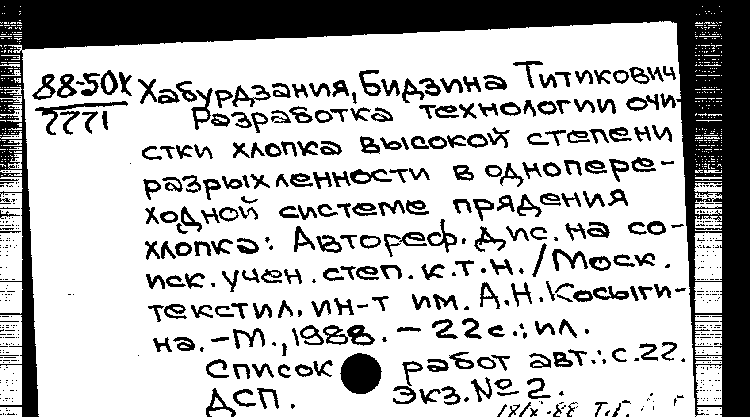 88-50к Хабурдзания, Бидзина Титикович
7771 Разработка технологии очи-
стки хлопка высокой степени
разрыхленности в однопере-
ходной системе прядения
хлопка: Автореф. дис. на со-
иск. учен. степ. к.т.н. / Моск.
текстил. ин-т им. А.Н. Косыги-
на. - М., 1988. - 22 с.: ил.
Список работ авт.: с. 22.
ДСП. Экз. № 2.